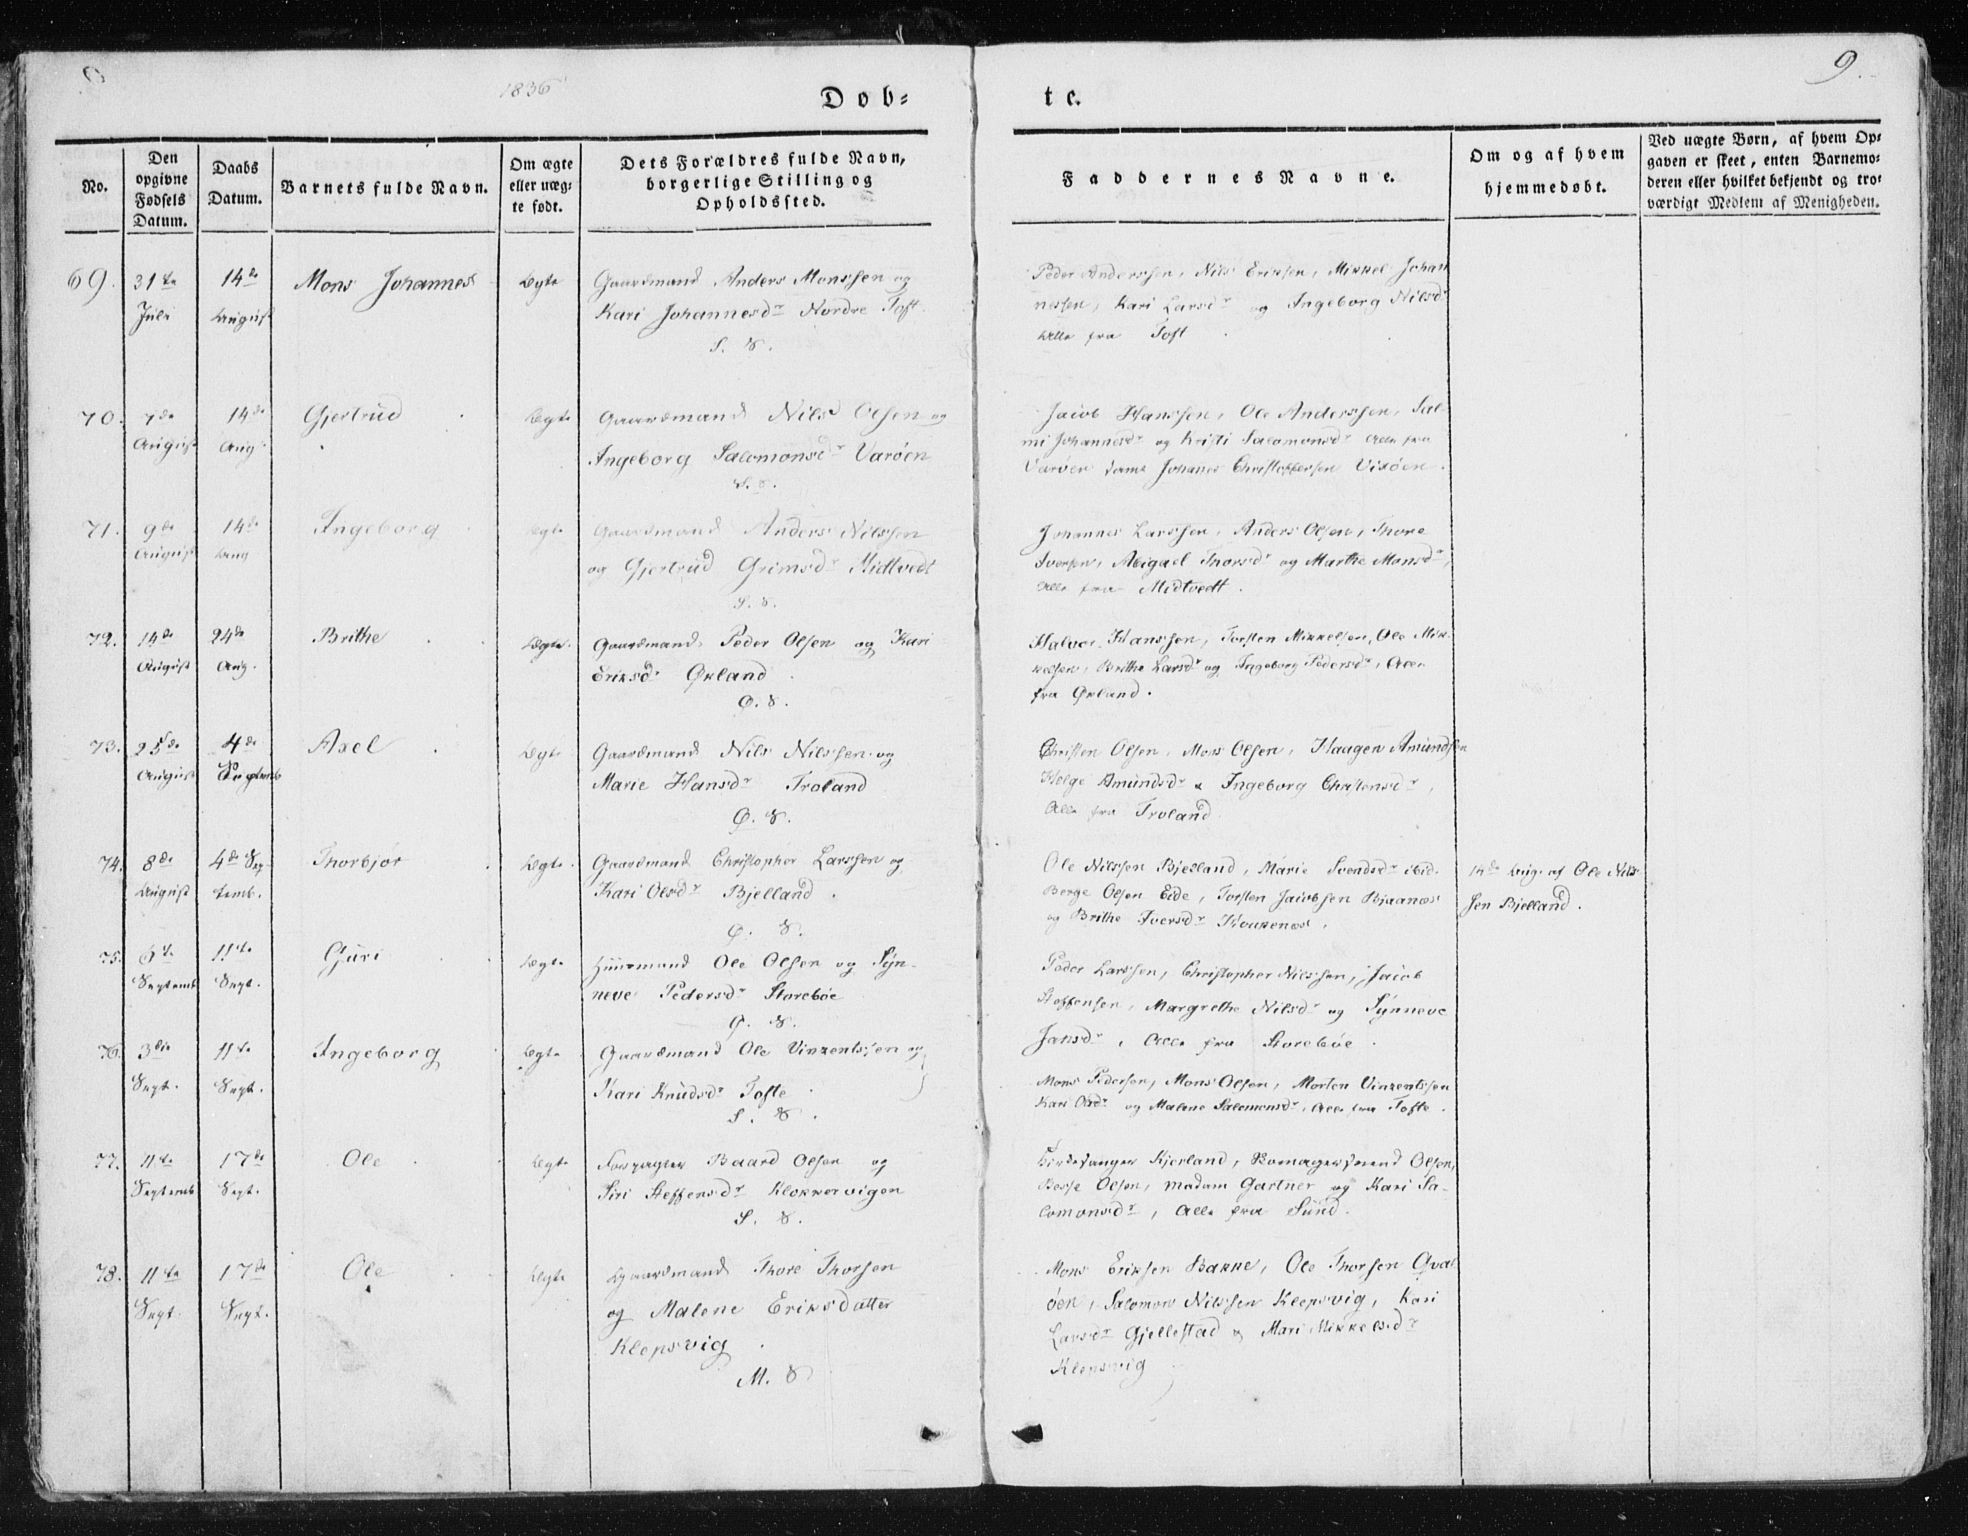 1836
9.
Dob-
te.
No.
Den opgivne Fødsels Datum.
Daabs Datum.
Barnets fulde Navn.
Om ægte eller uæg-
te født.
Dets Forældres fulde Navn,
borgerlige Stilling og
Opholdssted.
Faddernes Navne.
Om og af hvem
hjemmedøbt.
Ved uægte Børn, af hvem Op-
gaven er skeet, enten Barnemo-
deren eller hvilket bekjendt og tro-
værdigt Medlem af Menigheden.
69. 31te Juli 14de August Mons Johannes Ægte
Gaardmand Anders Monssen og
Kari Johannesdr Nordre Toft
S. S.
Peder Anderssen, Nils Eriksen, Mikkel Johan
nessen, Kari Larsdr og Ingeborg Nilsdr
Alle fra Toft
70. 7de August 14de Aug. Gjertrud Ægte
Gaardmand Nils Olsen og
Ingeborg Salomonsdr Varöen
S. S.
Jacob Hanssen, Ole Anderssen, Sal-
mi Johannesdr og Kristi Salomonsdr Alle fra
Varöen samt Johanes Christoffersen Vixöen.
71. 9de August 14de Aug Ingeborg Ægte
Gaardmand Anders Nilssen
og Gjertrud Grimsdr Midtvedt
S. S.
Johannes Larssen, Anders Olsen, Thore
Iversen, Abigael Thorsdr og Marthe Monsdr,
Alle fra Midtvedt.
72. 14de August 24de Aug. Brithe Ægte
Gaardmand Peder Olsen og Kari
Eriksdr Økland
Ø. S.
Halvor Hanssen, Torsten Mikkelsen, Ole Mik-
kelsen, Brithe Larsdr og Ingeborg Pedersdr, Alle
fra Økland.
73. 25de August 4de Septemb Axel Ægte
Gaardmand Nils Nilssen og
Marie Hansdr Troland
Ø. S.
Christen Olsen, Mons Olsen, Haagen Amundsen
Helge Amundsdr & Ingeborg Christensdr,
Alle fra Troland
74. 8de August 4de Sep-
temb. Thorbjør Ægte
Gaardmand Christopher Larssen og
Kari Olsdr Bjelland.
Ø. S.
Ole Nilssen Bjelland, Marie Svendsdr ibid.
Berge Olsen Eide, Torsten Jacobsen Bjaanæs
og Brithe Iversdr Kvakenæs.
14de Aug. af Ole Nils-
sen Bjelland.
75. 6te Septemb 11te Sept. Guri Ægte
Huusmand Ole Olsen og Syn-
neve Pedersdr Storebøe
Ø. S.
Peder Larssen, Christopher Nilssen, Jacob
Steffensen, Margrethe Nilsdr og Synneve
Jansdr, Alle fra Storebøe.
76. 3die Sept. 11te Sept. Ingeborg Ægte
Gaardmand Ole Vinzentssen og
Kari Knudsdr Tofte
S. S.
Mons Pedersen, Mons Olsen, Morten Vinzentssen
Kari Olsdr og Malene Salomonsdr, Alle fra Tofte.
77. 11te Septemb 17de Sept. Ole Ægte
Forpagter Baard Olsen og
Siri Steffensdr Klokkervigen
S. S.
Kirkesanger Kjerland, Bomagersvend Olsen,
Besse Olsen, Madam Gartner og Kari Sa-
lomonsdr, Alle fra Sund.
78. 11te Sept. 17de Sept. Ole Ægte
Gaardmand Thore Thorsen
og Malene Eriksdatter
Klepsvig
M. S
Mons Eriksen Bakke, Ole Thorsen Qval
öen, Salomon Nilssen Klepsvig, Kari
Larsdr Gjellestad & Mari Mikkelsdr
Klepsvig